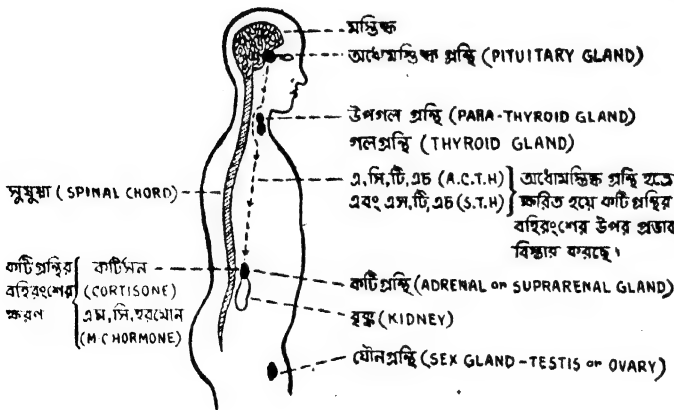 মস্তিষ্ক
অধোমস্তিষ্ক গ্রন্থি (PITUITARY GLAND)
উপগল গ্রন্থি (PARA-THYROID GLAND)
গলগ্রন্থি (THYROID GLAND)
এ,সি,টি,এচ (A.C.T.H)
এবং এস,টি,এচ (S.T.H)
অধোমস্তিষ্ক গ্রন্থি হতে
ক্ষরিত হয়ে কটি গ্রন্থির
বহিরংশের উপর প্রভাব
বিস্তার করছে।
সুষুম্না (SPINAL CHORD)
কটিগ্রন্থির
বহিরংশের
ক্ষরণ
কর্টিসন
(CORTISONE)
এম,সি,হরমোন
(M·C HORMONE)
কটিগ্রন্থি (ADRENAL or SUPRARENAL GLAND)
বৃক্ক (KIDNEY)
যৌনগ্রন্থি (SEX GLAND-TESTIS or OVARY)